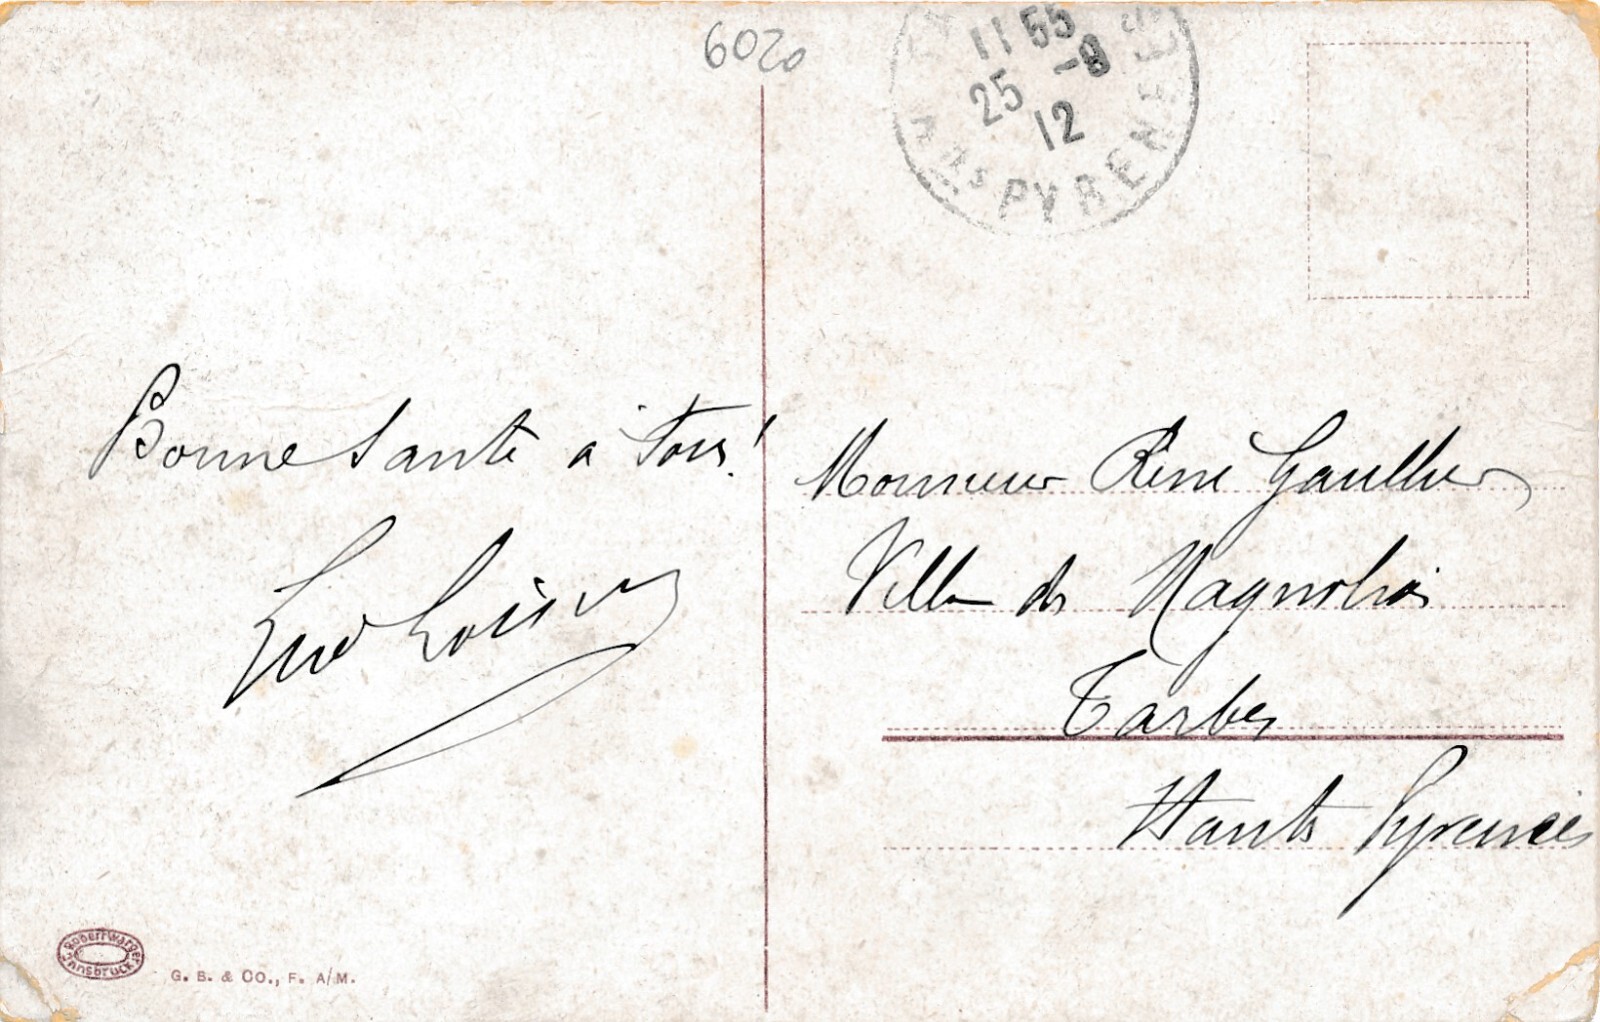 6020
11 55
25 -8
12
Htes PYRENEES
Bonne Santé à Tous!
Monsieur René Gaulthier
Villa des Magnolias
Tarbes
Hautes Pyrénées
Robert Warger
Innsbruck
G. B. & CO., F. A/M.